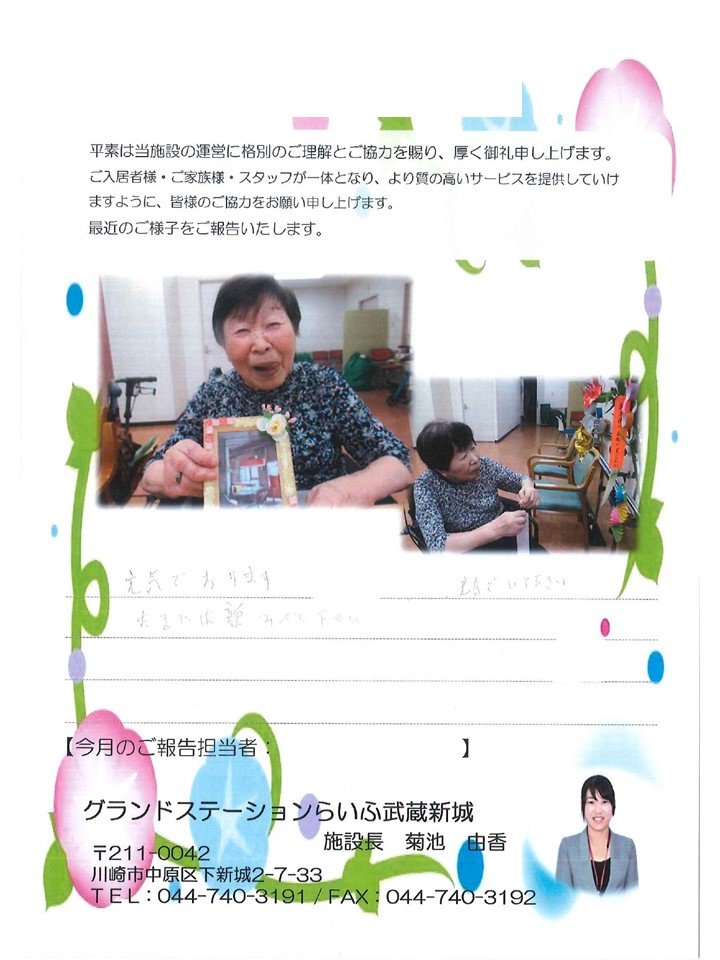 平素は当施設の運営に格別のご理解とご協力を賜り、厚く御礼申し上げます。
ご入居者様・ご家族様・スタッフが一体となり、より質の高いサービスを提供していけ
ますように、皆様のご協力をお願い申し上げます。
最近のご様子をご報告いたします。
元気でおります
元気でいて下さい
たまには顔みせて下さい
【今月のご報告担当者： 】
グランドステーションらいふ武蔵新城
施設長 菊池 由香
〒211-0042
川崎市中原区下新城2-7-33
ＴＥＬ：044-740-3191 / FAX：044-740-3192